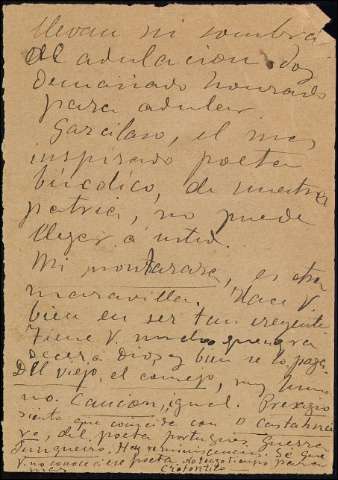 llevan ni sombra
de adulación. Soy
demasiado honrado
para adular.
Garcilaso, el mas
inspirado poeta
bucólico, de nuestra
patria, no puede
llegar á usted.
Mi montaraza, es otra
maravilla. Hace V.
bien en ser tan creyente.
Tiene V. mucho que
á Dios y bien se lo paga.
Del viejo, el consejo, muy
no. Cancion, igual.
que coincide con O
del poeta portugues Guerra
Junqueiro. Hay reminiscencias. Se que
V. no conoce á ese poeta. No tengo tiempo para
mas